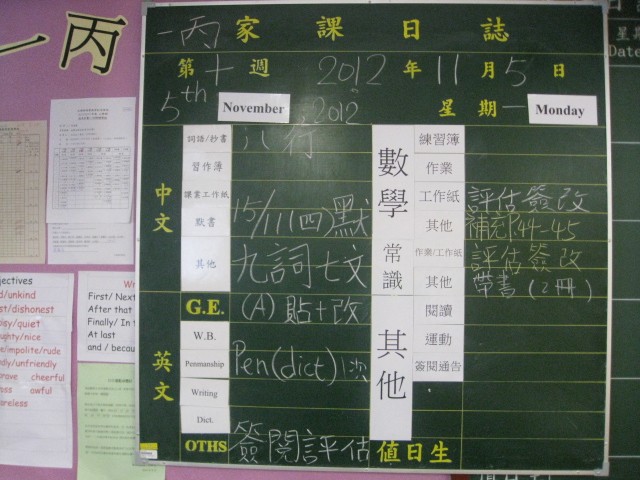 一丙
一丙 家課日誌
第十週 2012年11月5日
5th November 2012 星期一 Monday
中文
詞語/抄書 八行
習作簿
默書 15/11(四)默
其他 九詞七文
G.E. (A)貼+改
英文
W.B.
Penmanship Pen(dict)1次
Writing
Dict.
OTHS 簽閱評估
數學
練習簿
作業
工作紙 評估簽改
其他 補充44-45
常識
作業/工作紙 評估簽改
其他 帶書(2冊)
其他
閱讀
運動
簽閱通告
值日生
Date
First/ Next
After that
Finally/ In t
At last
and / becau
djectives
d/unkind
est/dishonest
isy/quiet
ughty/nice
e/impolite/rude
dly/unfriendly
rave cheerful
ss awful
areless